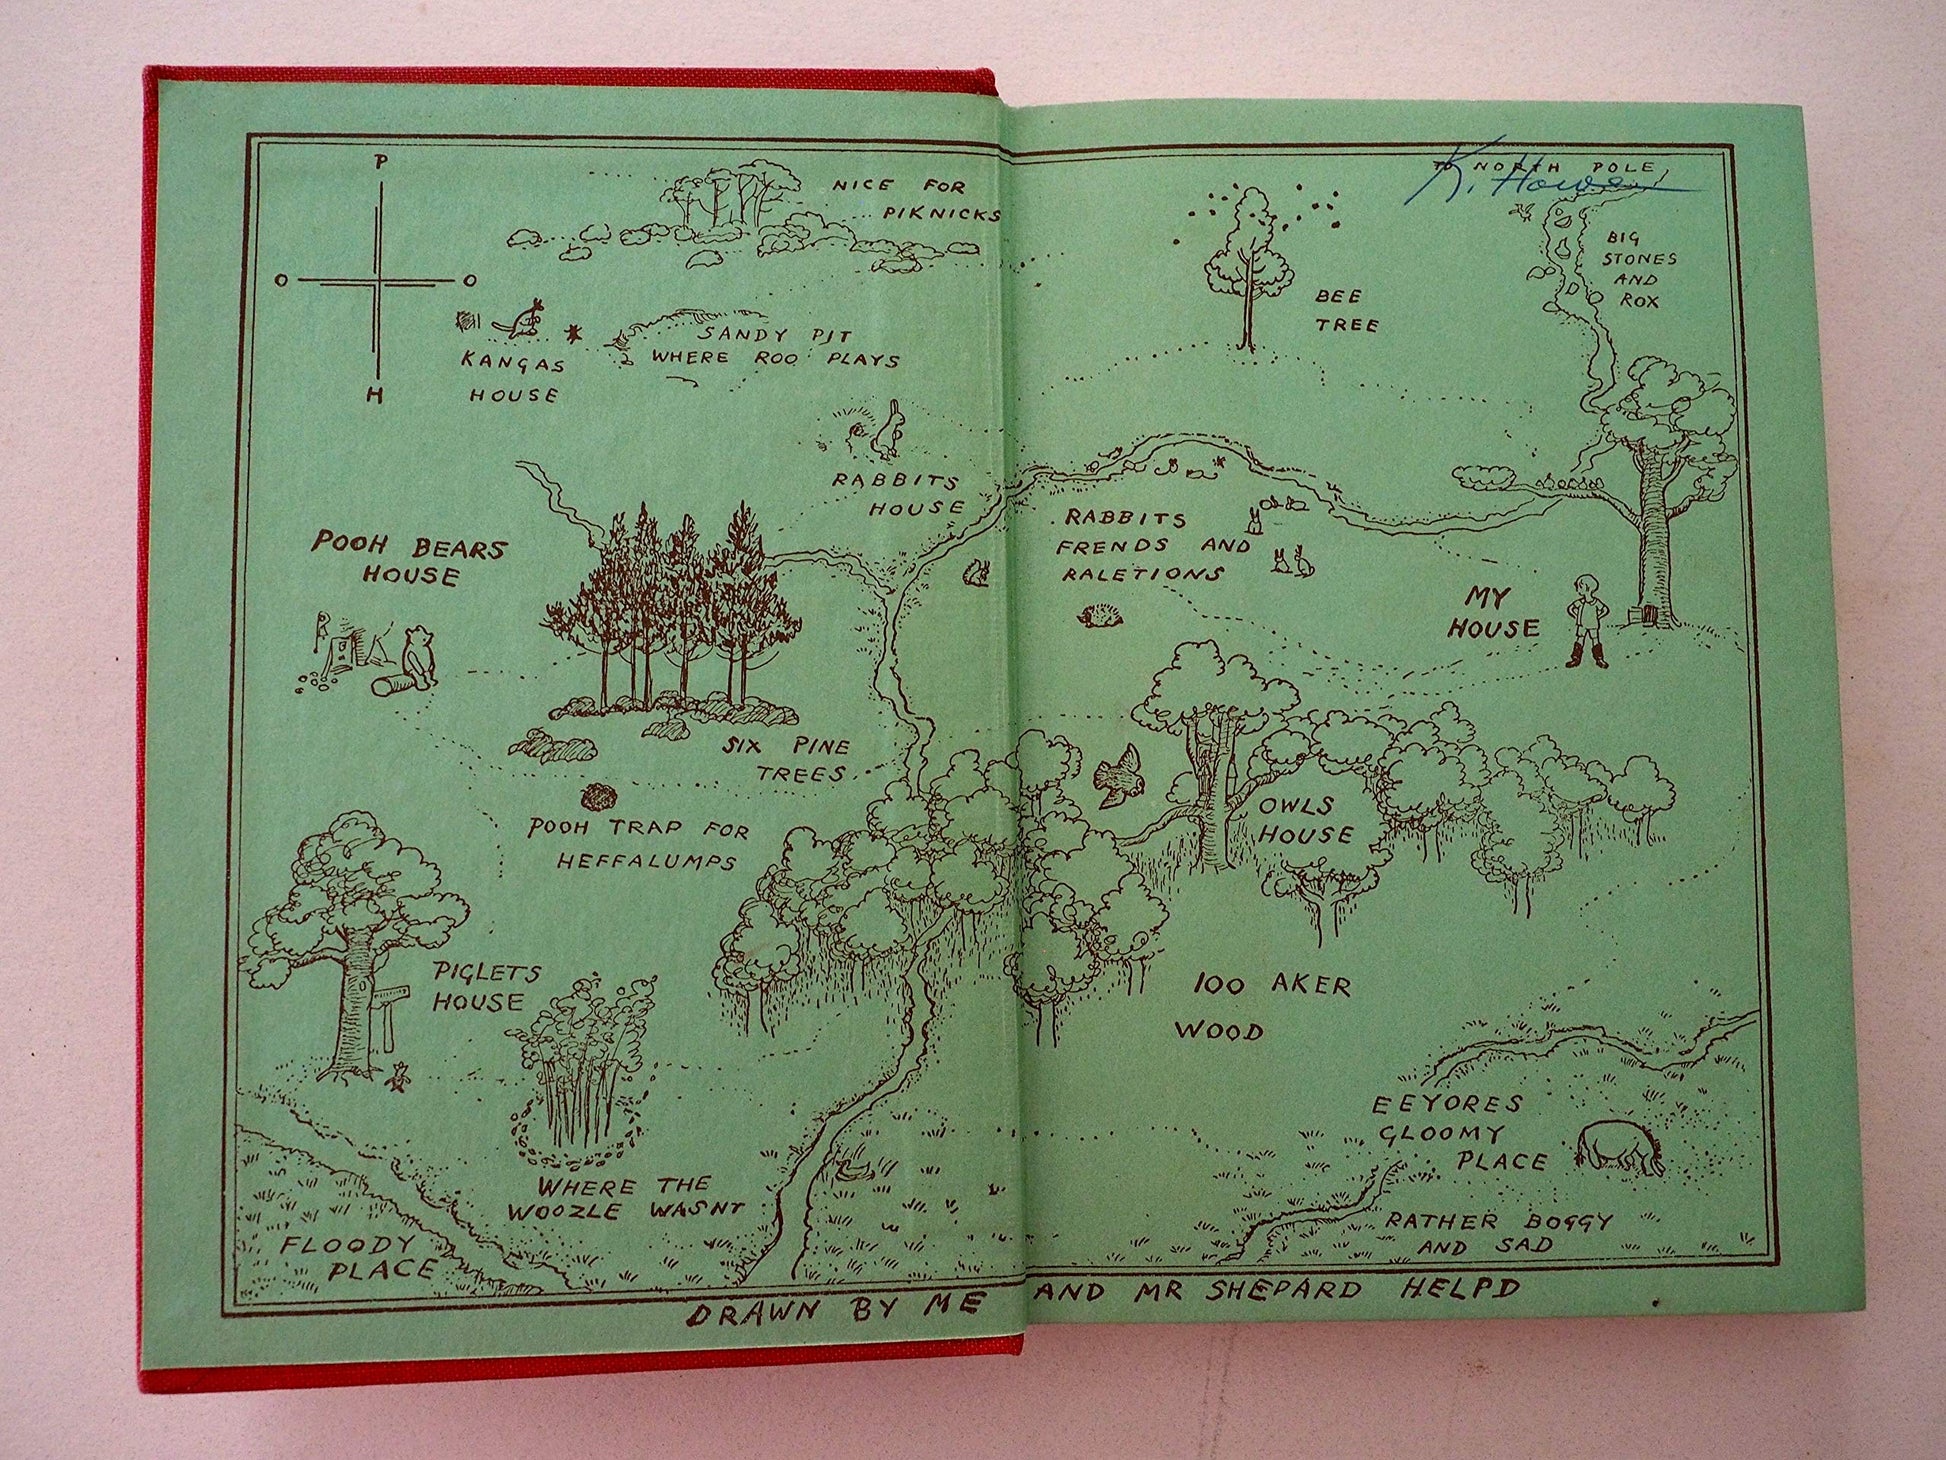 P
O O
H
NICE FOR
PIKNICKS
TO NORTH POLE
K. Howe
BIG
STONES
AND
ROX
BEE
TREE
KANGAS
HOUSE
SANDY PIT
WHERE ROO PLAYS
RABBITS
HOUSE
RABBITS
FRENDS AND
RALETIONS
POOH BEARS
HOUSE
MY
HOUSE
SIX PINE
TREES
POOH TRAP FOR
HEFFALUMPS
OWLS
HOUSE
PIGLETS
HOUSE
100 AKER
WOOD
WHERE THE
WOOZLE WASNT
EEYORES
GLOOMY
PLACE
RATHER BOGGY
AND SAD
FLOODY
PLACE
DRAWN BY ME AND MR SHEPARD HELPD